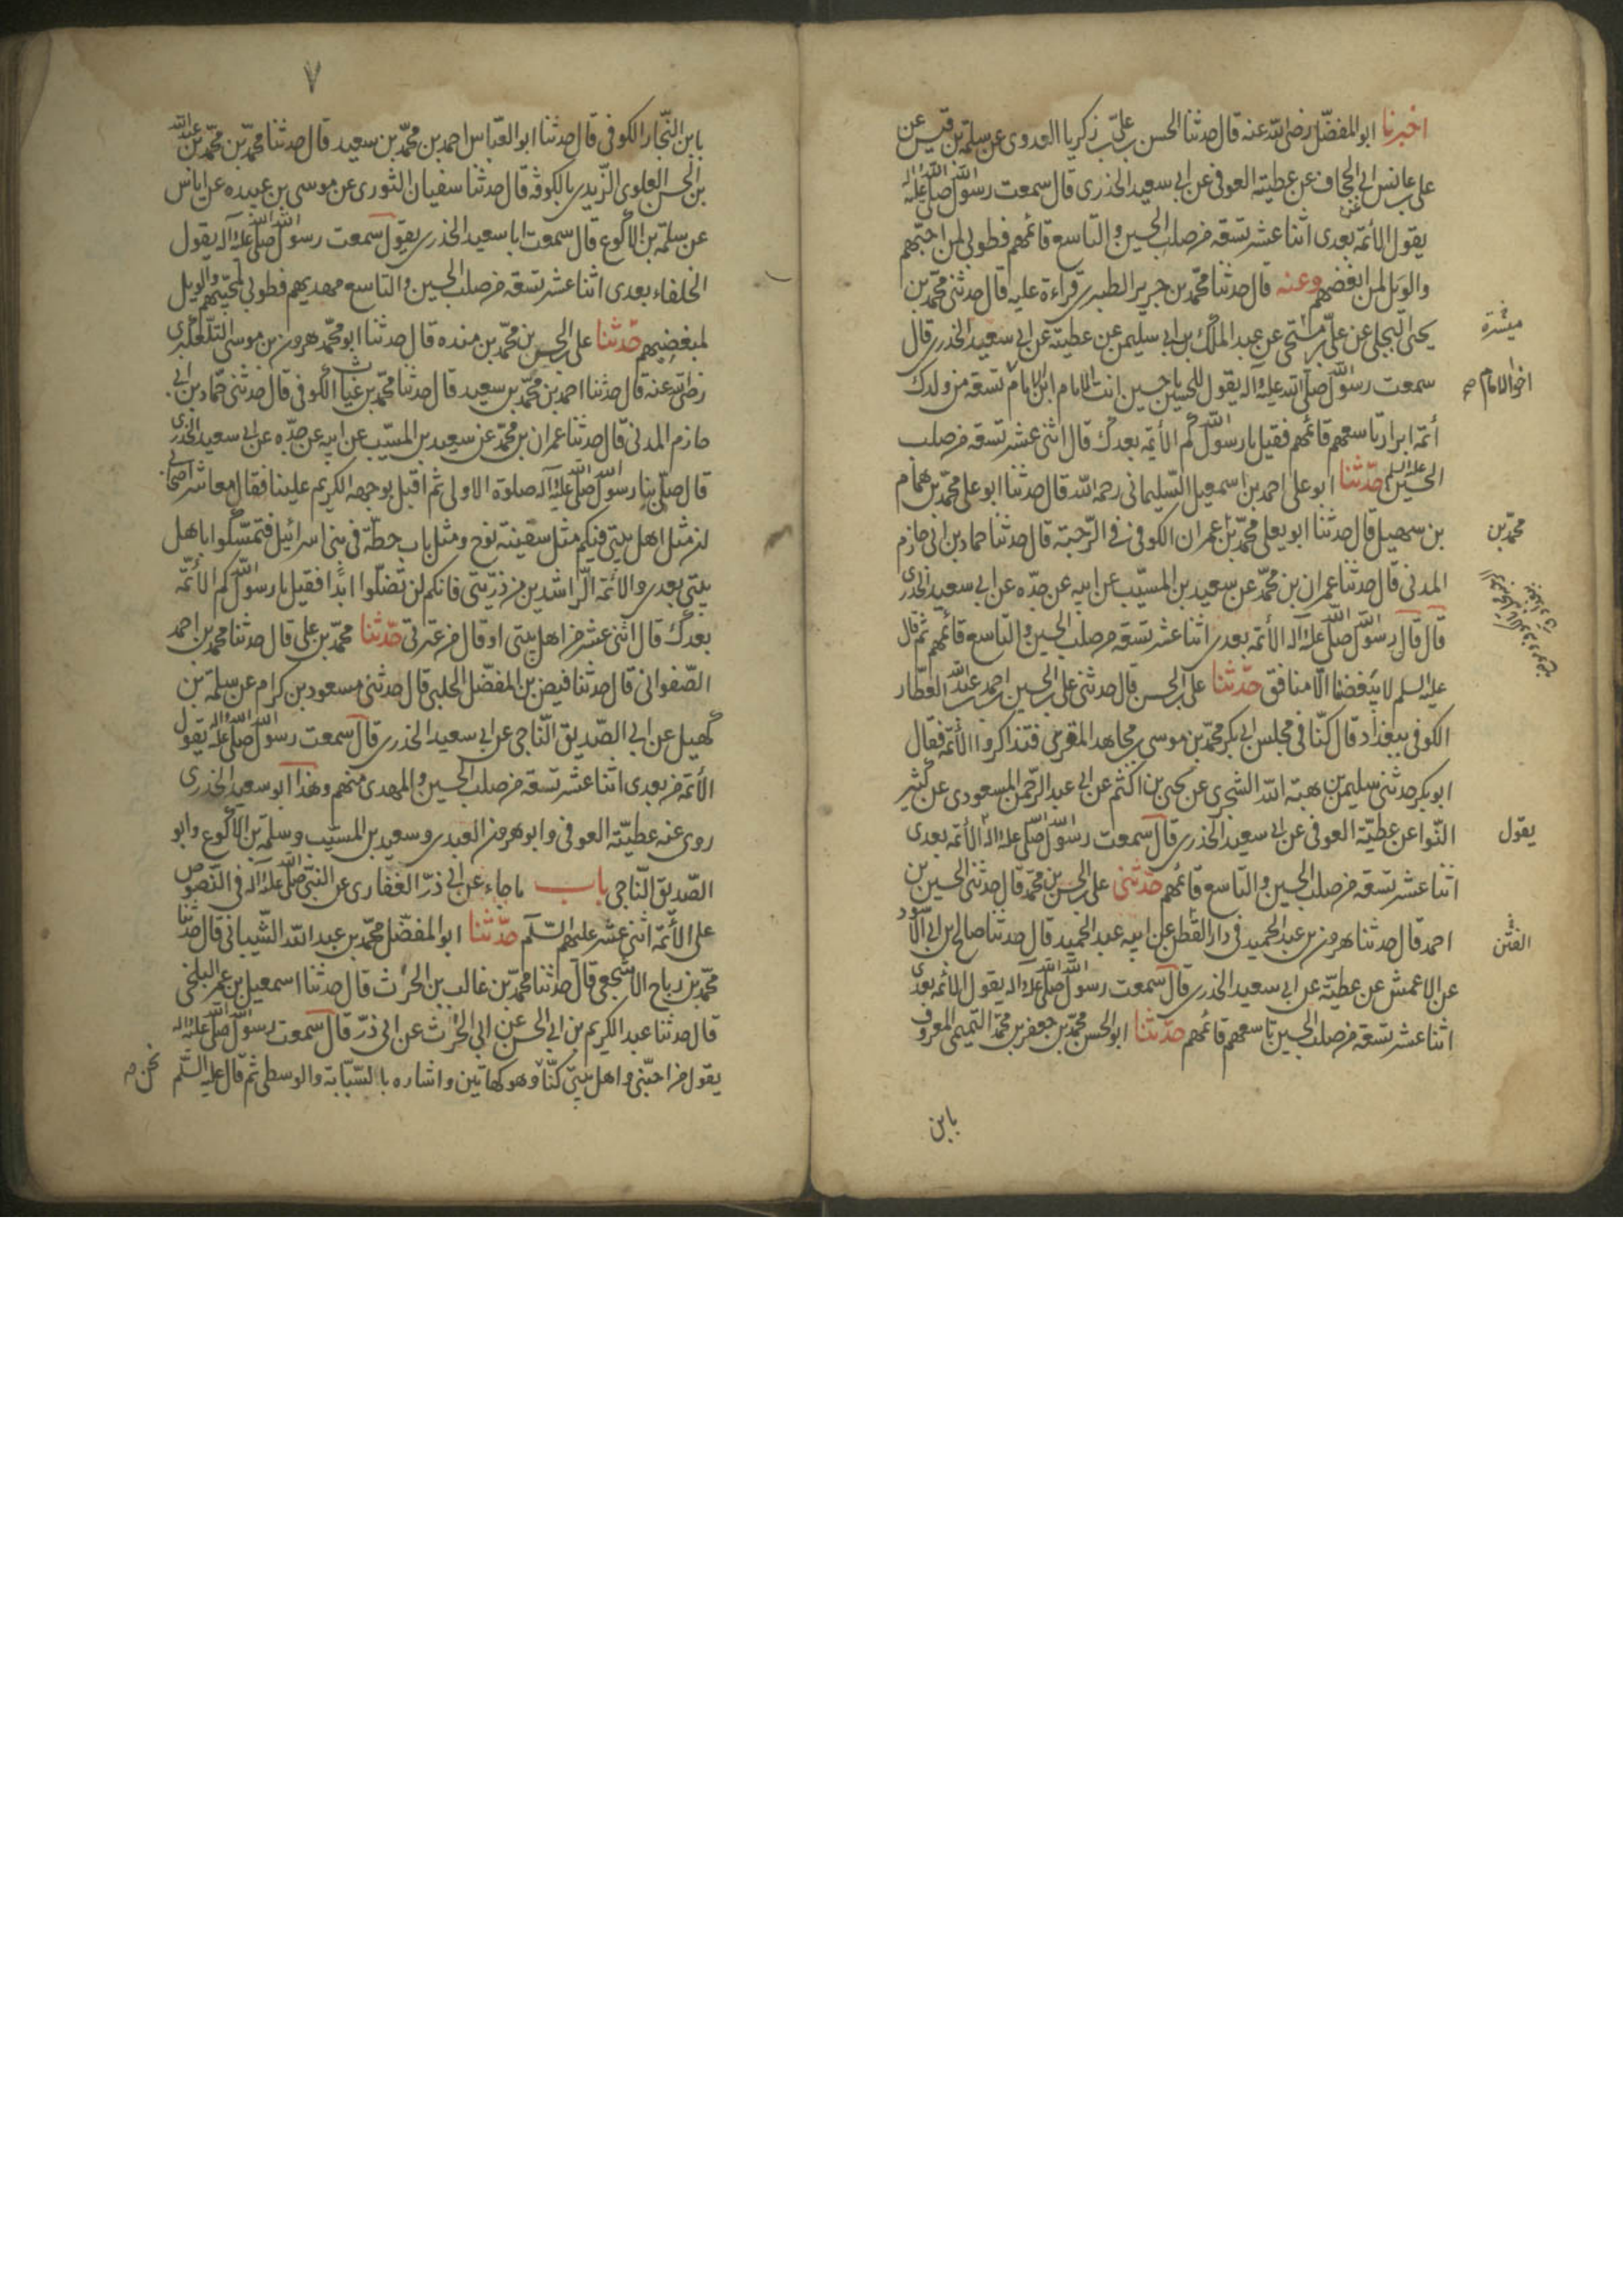 اخبرنا ابو المفضّل رضى الله عنه قال حدثنا الحسن بن علىّ بن زكريا العدوى عن سلمة بن قيس عن
على بن عابس ابى الجحاف عن عطيته العوفى عن ابى سعيد الخدرى قال سمعت رسول الله صلى الله عليه وآله
يقول الائمّة بعدى اثنا عشر تسعة من صلب الحسين والتاسع قائمهم فطوبى لمن احبّهم
والويل لمن ابغضهم وعنه قال حدثنا محمّد بن جرير الطبرى قراءة عليه قال حدثنى محمّد بن
يحيى البجلى عن علىّ بن مسهر عن عبد الملك بن ابى سليمن عن عطيته عن ابى سعيد الخدرى قال
سمعت رسول الله صلى الله عليه وآله يقول للحسين يا حسين انت الامام ابن الامام تسعة من ولدك
أئمّة ابرار تاسعهم قائمهم فقيل يا رسول الله كم الأئمة بعدك قال اثنى عشر تسعة من صلب
الحسين عليه السلم حدّثنا ابو على احمد بن اسمعيل السّليمانى رحمه الله قال حدثنا ابو على محمّد بن همام
بن سهيل قال حدثنا ابو يعلى محمّد بن عمران الكوفى فى الرّحبة قال حدثنا حماد بن ابى حازم
المدنى قال حدثنا عمران بن محمّد عن سعيد بن المسيّب عن ابيه عن جدّه عن ابى سعيد الخدرى
قال قال رسول الله صلى الله عليه وآله الأئمة بعدى اثنا عشر تسعة من صلب الحسين والتاسع قائمهم ثم قال
عليه السلم لا يبغضنا الّا منافق حدّثنا على بن الحسن قال حدثنى على بن الحسين احمد بن عبد الله العطار
الكوفى ببغداد قال كنّا فى مجلس ابى بكر محمّد بن موسى بن مجاهد المقرى فتذاكروا الأئمّة فقال
ابو بكر حدثنى سليمن بن هبة الله الشجرى عن يحيى بن اكثم عن ابى عبد الرّحمن المسعودى عن كثير
النّوا عن عطيّة العوفى عن ابى سعيد الخدرى قال سمعت رسول الله صلى الله عليه وآله الأئمّة بعدى
اثنا عشر تسعة من صلب الحسين والتاسع قائمهم حدّثنى على بن الحسن بن محمّد قال حدثنى الحسين بن
احمد قال حدثنا هرون بن عبد الحميد فى دار القطن عن ابيه عبد الحميد قال حدثنا صالح بن ابى الأسود
عن الاعمش عن عطيّة عن ابى سعيد الخدرى قال سمعت رسول الله صلى الله عليه وآله يقول الأئمة بعدى
اثنا عشر تسعة من صلب الحسين تاسعهم قائمهم حدّثنا ابو الحسن محمّد بن جعفر بن محمّد التميمى المعروف
بابن
اخو الامام صح
محمّد بن
يقول
٧
بابن النّجار الكوفى قال حدثنا ابو العبّاس احمد بن محمّد بن سعيد قال حدثنا محمّد بن محمّد بن عبد الله
بن الحسن العلوى الزّيدى بالكوفة قال حدثنا سفيان الثورى عن موسى بن عبيده عن اياس
عن سلمة بن الاكوع قال سمعت ابا سعيد الخدرى يقول سمعت رسول الله صلى الله عليه وآله يقول
الخلفاء بعدى اثنا عشر تسعة من صلب الحسين والتاسع مهديهم فطوبى لمحبّيهم والويل
لمبغضيهم حدّثنا على بن الحسن بن محمّد بن منده قال حدثنا ابو محمّد هرون بن موسى التلّعكبرى
رضى الله عنه قال حدثنا احمد بن محمّد بن سعيد قال حدثنا محمّد بن غياث الكوفى قال حدثنى حمّاد بن ابى
حازم المدنى قال حدثنا عمران بن محمّد عن سعيد بن المسيّب عن ابيه عن جدّه عن ابى سعيد الخدرى
قال صلّى بنا رسول الله صلى الله عليه وآله صلوة الاولى ثم اقبل بوجهه الكريم علينا فقال معاشر اصحابى
ان مثل اهل بيتى فيكم مثل سفينة نوح ومثل باب حطّة فى بنى اسرائيل فتمسّكوا باهل
بيتى بعدى والأئمّة الرّاشدين من ذرّيتى فانكم لن تضلّوا ابدًا فقيل يا رسول الله كم الأئمّة
بعدك قال اثنى عشر من اهل بيتى او قال من عترتى حدّثنا محمّد بن على قال حدثنا محمد بن احمد
الصّفوانى قال حدثنا فيض بن المفضّل الحلبى قال حدثنى مسعود بن كرام عن سلمة بن
كهيل عن ابى الصّديق النّاجى عن ابى سعيد الخدرى قال سمعت رسول الله صلى الله عليه وآله يقول
الأئمّة من بعدى اثنا عشر تسعة من صلب الحسين والمهدى منهم وهذا ابو سعيد الخدرى
روى عنه عطيّة العوفى وابو هرون العبدى وسعيد بن المسيّب وسلمة بن الأكوع وابو
الصّديق النّاجى باب ما جاء عن ابى ذرّ الغفارى عن النبىّ صلى الله عليه وآله فى النّصوص
على الأئمّة اثنى عشر عليهم السّلم حدّثنا ابو المفضّل محمّد بن عبد الله الشّيبانى قال حدّثنا
محمّد بن رباح الاشجعى قال حدثنا محمّد بن غالب بن الحرث قال حدثنا اسمعيل بن عمر البلخى
قال حدثنا عبد الكريم بن ابى الحسن عن ابى الحرث عن ابى ذرّ قال سمعت رسول الله صلى الله عليه وآله
يقول من احبّنى واهل بيتى كنّا وهو كهاتين واشاره بالسّبّابة والوسطى ثم قال عليه السّلم